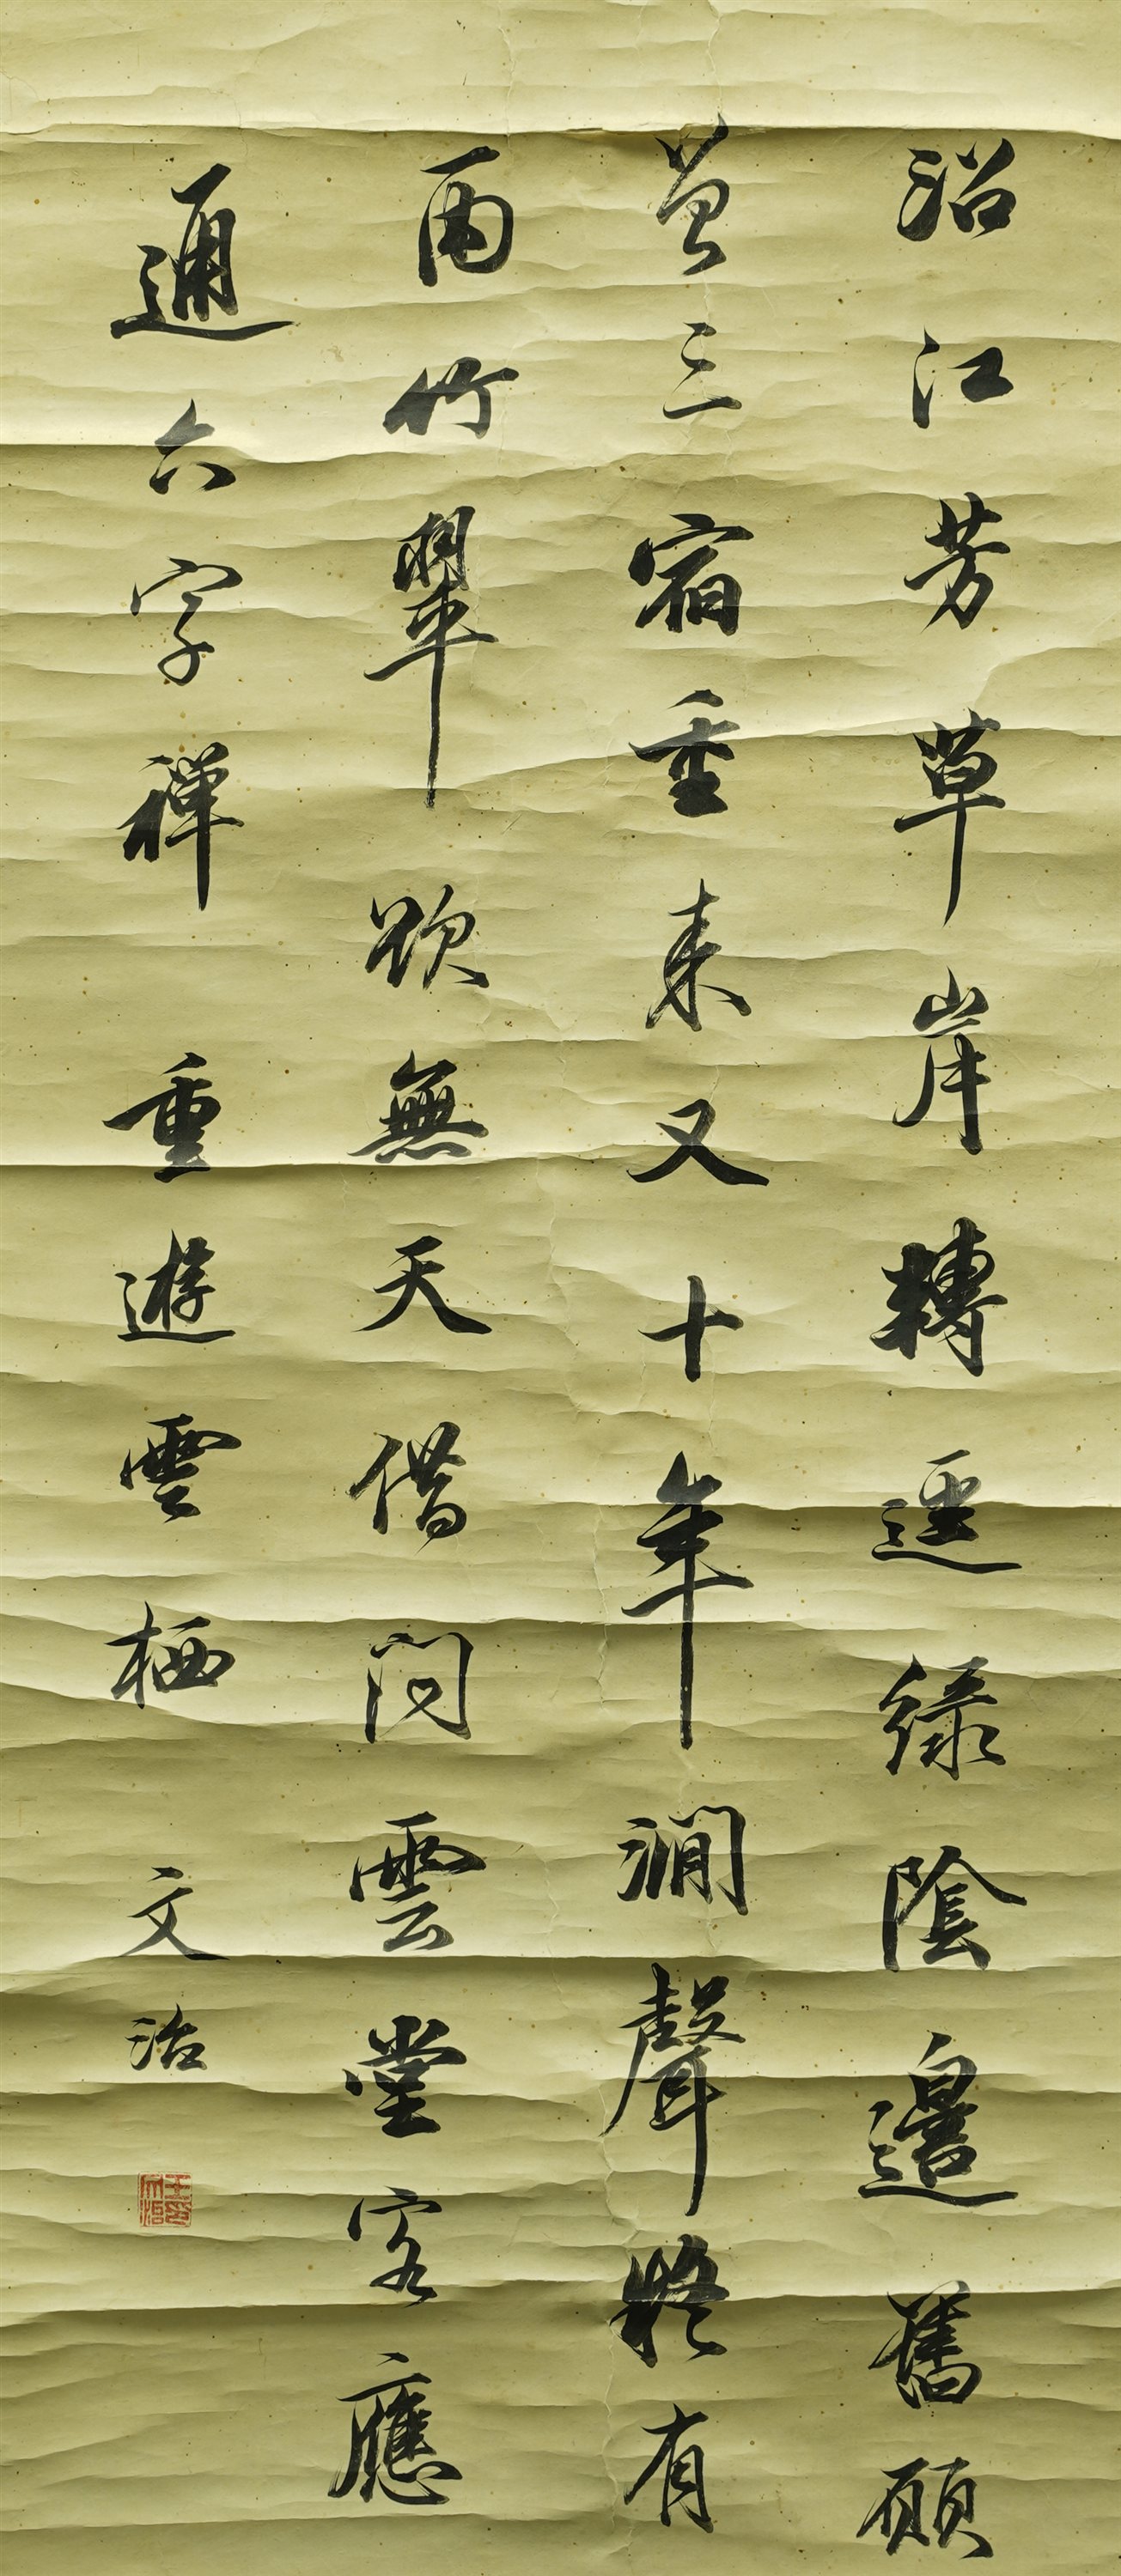 沿江芳草岸轉逕綠陰邊舊願
曾三宿重來又十年澗聲疑有
雨竹翠欲無天借問雲堂客應
通六字禪 重遊雲栖 文治
王文治印